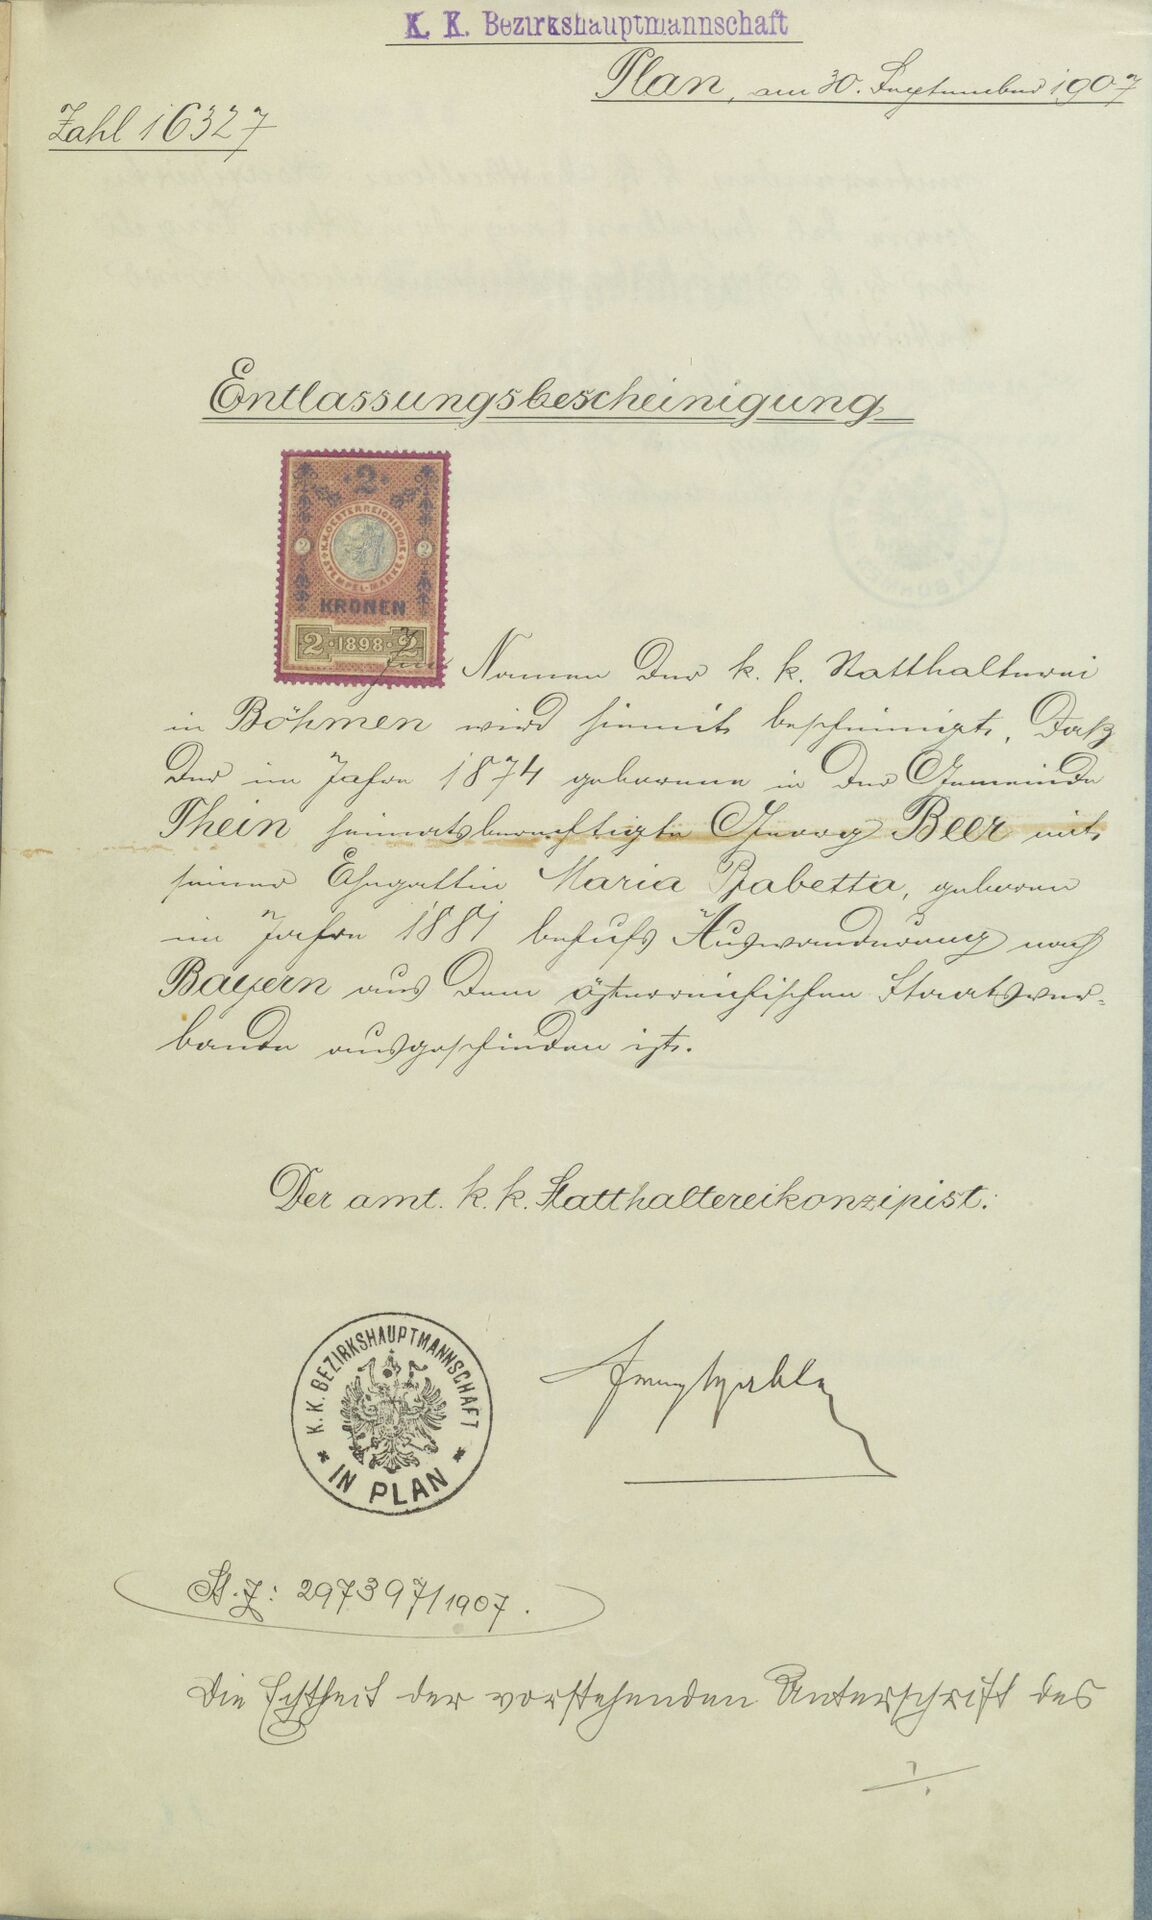 K. K. Bezirkshauptmannschaft
Plan, am 30. September 1907
Zahl 16327
Entlassungsbescheinigung
2
K. K. OESTERREICHISCHE STEMPEL-MARKE
2 2
KRONEN
2 · 1898 · 2
Im Namen der k. k. Statthalterei
in Böhmen wird hiemit bescheinigt, daß
der im Jahre 1874 geborene in der Gemeinde
Thein heimatsberechtigte Georg Beer mit
seiner Ehegattin Maria Babetta, geboren
im Jahre 1881 behufs Auswanderung nach
Bayern aus dem österreichischen Staatsver-
bande ausgeschieden ist.
Der amt. k. k. Statthaltereikonzipist:
K. K. BEZIRKSHAUPTMANNSCHAFT
* IN PLAN *
St. Z: 297397/1907.
Die Echtheit der vorstehenden Unterschrift des
./.